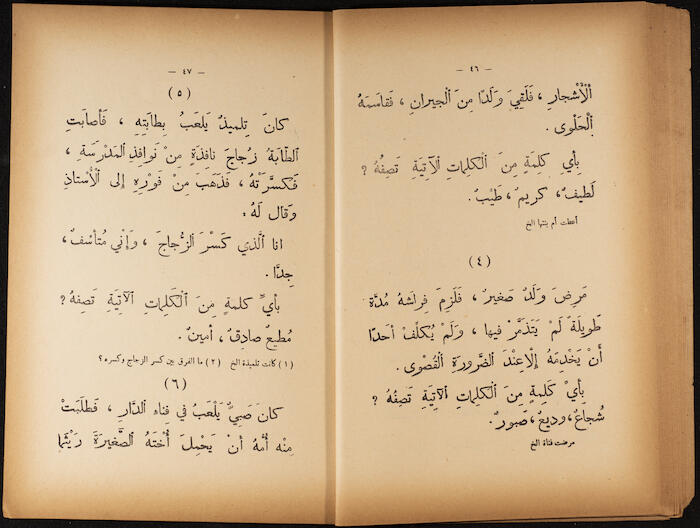 — ٤٦ —
الْأَشْجَارِ ، فَلَقِيَ وَلَدًا مِنَ الْجِيرَانِ ، فَقَاسَمَهُ
الْحَلْوَى .
بِأَيِّ كَلِمَةٍ مِنَ الْكَلِمَاتِ الْآتِيَةِ تَصِفُهُ ؟
لَطِيفٌ ، كَرِيمٌ ، طَيِّبٌ .
أعطت أم بنتها الخ
( ٤ )
مَرِضَ وَلَدٌ صَغِيرٌ ، فَلَزِمَ فِرَاشَهُ مُدَّةً
طَوِيلَةً لَمْ يَتَذَمَّرْ فِيهَا ، وَلَمْ يُكَلِّفْ أَحَدًا
أَنْ يَخْدِمَهُ إِلَّا عِنْدَ الضَّرُورَةِ الْقُصْوَى .
بِأَيِّ كَلِمَةٍ مِنَ الْكَلِمَاتِ الْآتِيَةِ تَصِفُهُ ؟
شُجَاعٌ ، وَدِيعٌ ، صَبُورٌ .
مرضت فتاة الخ
— ٤٧ —
( ٥ )
كَانَ تِلْمِيذٌ يَلْعَبُ بِطَابَتِهِ ، فَأَصَابَتِ
الطَّابَةُ زُجَاجَ نَافِذَةٍ مِنْ نَوَافِذِ الْمَدْرَسَةِ ،
فَكَسَّرَتْهُ ، فَذَهَبَ مِنْ فَوْرِهِ إِلَى الْأُسْتَاذِ
وَقَالَ لَهُ :
انا الَّذِي كَسَرَ الزُّجَاجَ ، وَإِنِّي مُتَأَسِّفٌ ،
جِدًّا .
بِأَيِّ كَلِمَةٍ مِنَ الْكَلِمَاتِ الْآتِيَةِ تَصِفُهُ ؟
مُطِيعٌ صَادِقٌ ، أَمِينٌ .
(١) كانت تلميذة الخ (٢) ما الفرق بين كسر الزجاج وكسره ؟
( ٦ )
كَانَ صَبِيٌّ يَلْعَبُ فِي فِنَاءِ الدَّارِ ، فَطَلَبَتْ
مِنْهُ أُمُّهُ أَنْ يَحْمِلَ أُخْتَهُ الصَّغِيرَةَ رَيْثَمَا